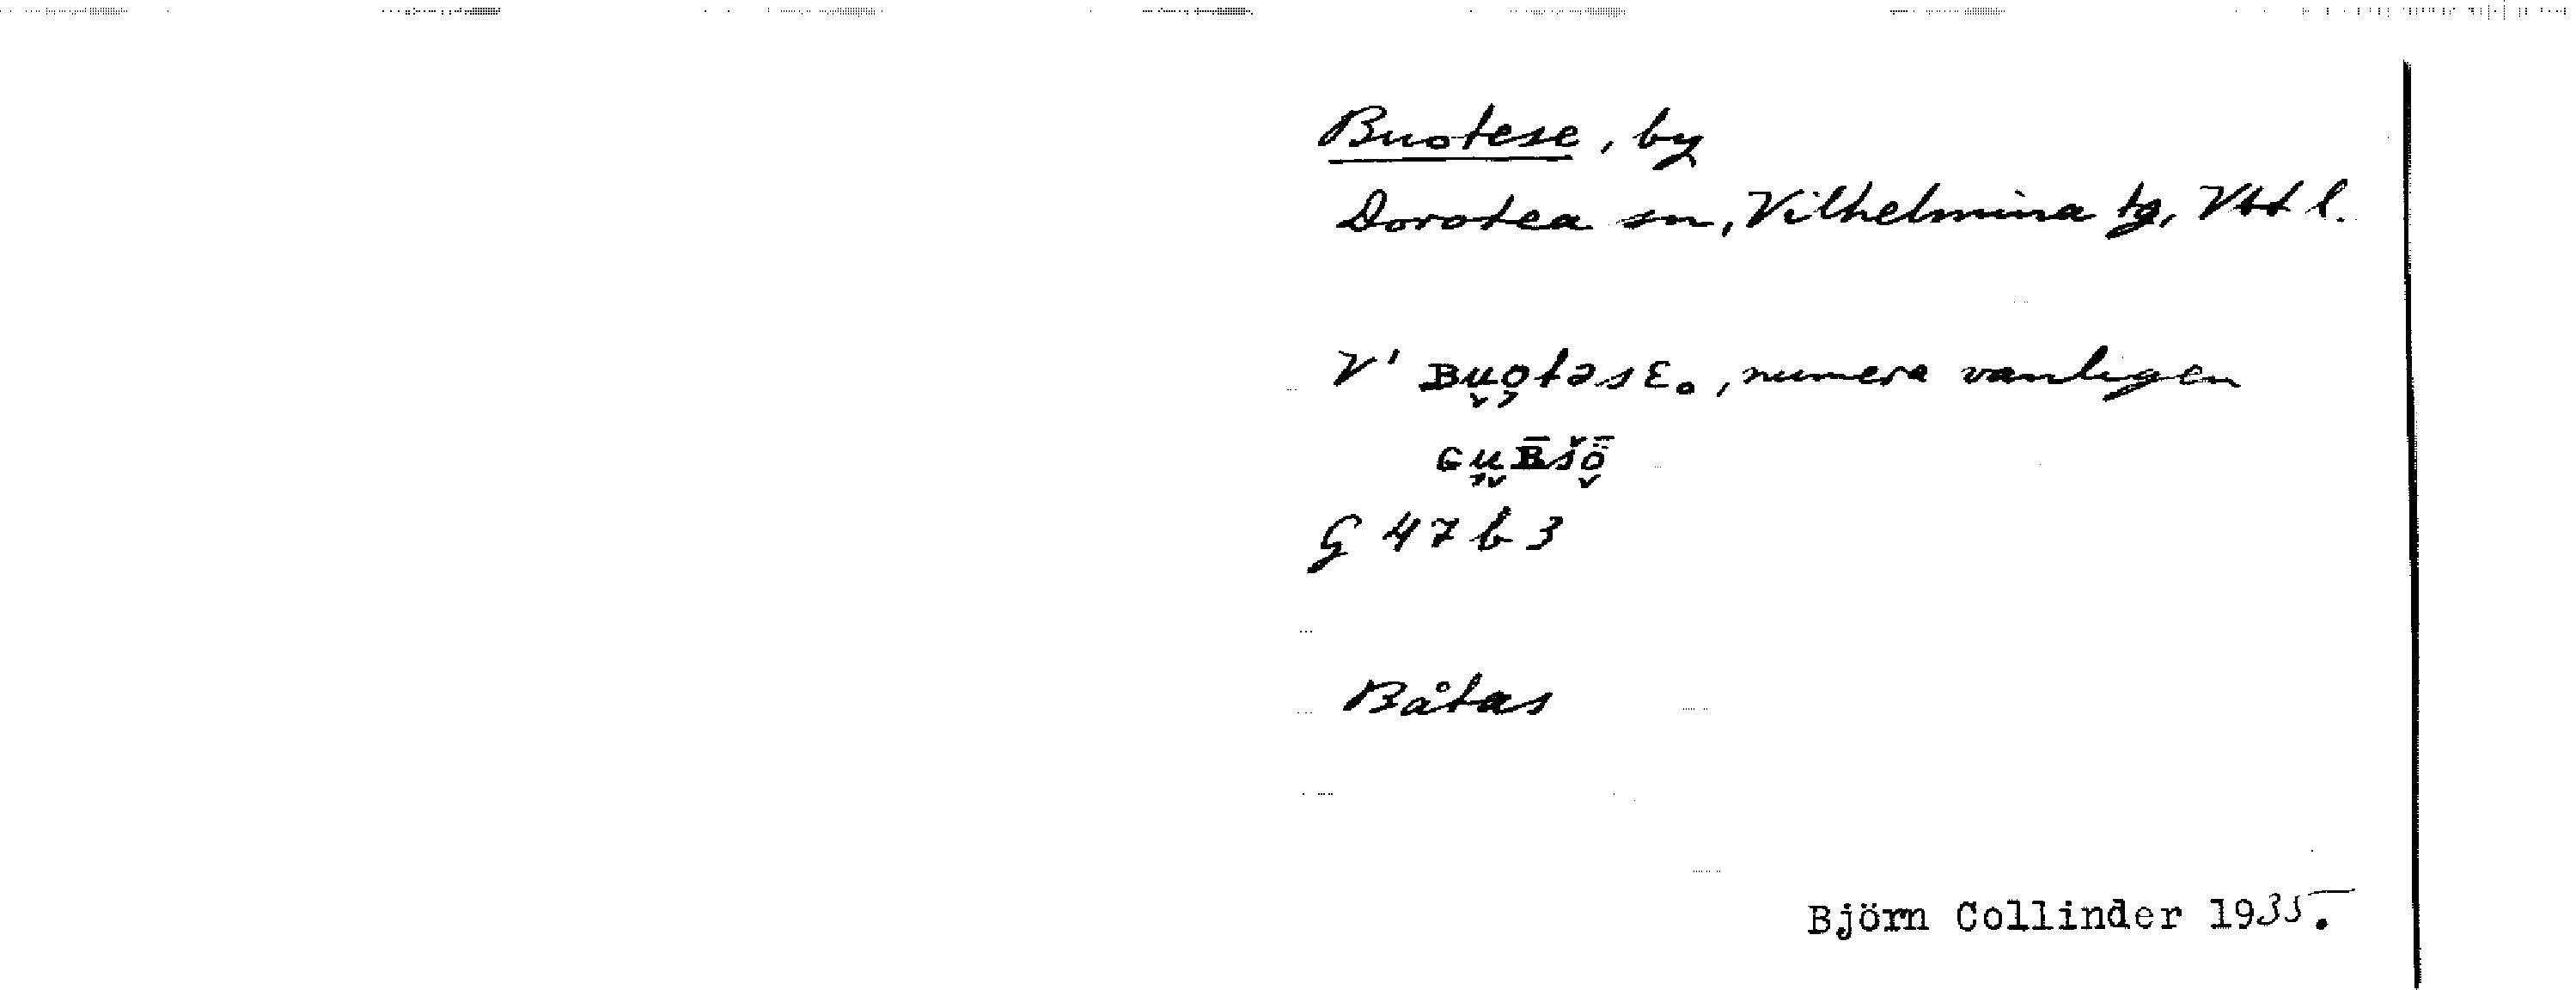 Buotese, by
Dorotea sn, Vilhelmina tg, Vbt l.
V' ʙu̬o˒təsɛ₀, numera vanligen
ɢu˒̬ʙ̄šȫ̬
G 47 b 3
Båtas
Björn Collinder 1935.